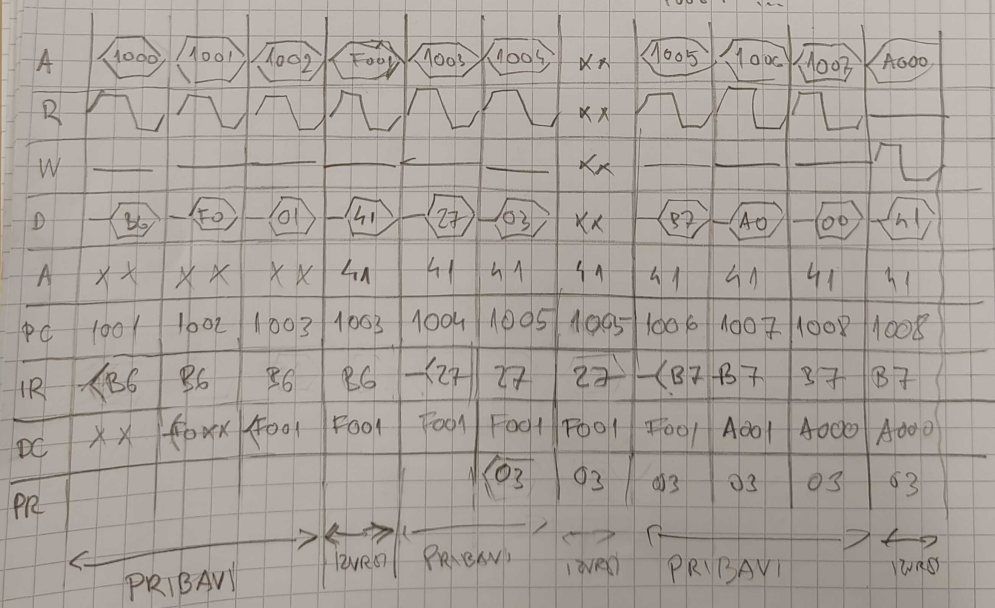 A 1000 1001 1002 F001 1003 1004 xx 1005 1006 1007 A000
R xx
W xx
D B6 F0 01 41 27 03 xx B7 A0 00 41
A xx xx xx 41 41 41 41 41 41 41 41
PC 1001 1002 1003 1003 1004 1005 1005 1006 1007 1008 1008
IR B6 B6 B6 B6 27 27 27 B7 B7 B7 B7
DC xx F0xx F001 F001 F001 F001 F001 F001 A001 A000 A000
PR 03 03 03 03 03 03
PRIBAVI IZVRŠI PRIBAVI IZVRŠI PRIBAVI IZVRŠI